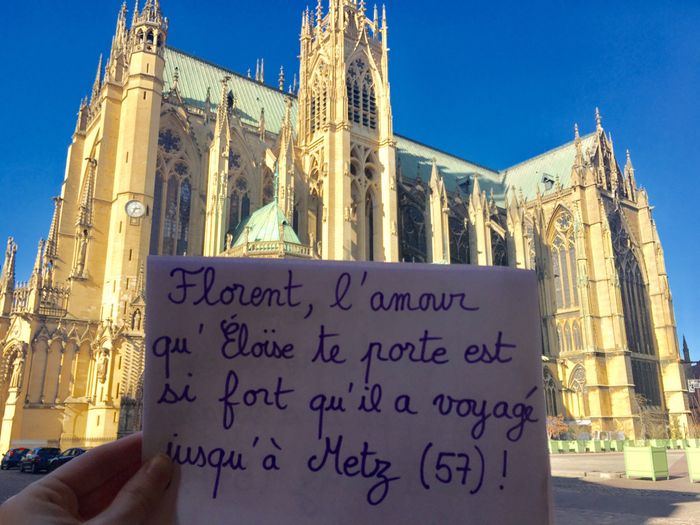 Florent, l'amour
qu' Éloïse te porte est
si fort qu'il a voyagé
jusqu'à Metz (57) !